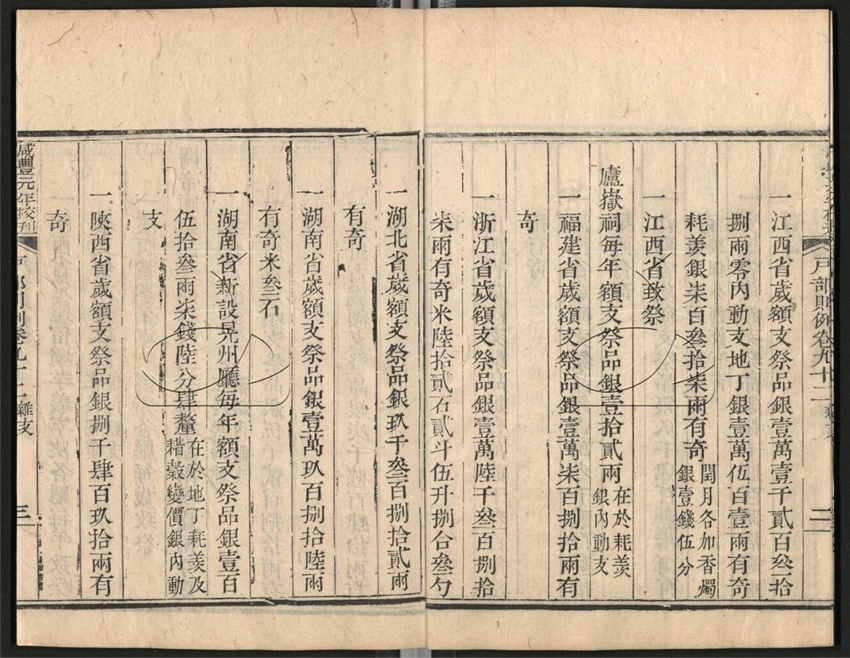 戶部則例卷九十二 雜支 二
一江西省歲額支祭品銀壹萬壹千貳百叁拾
捌兩零內動支地丁銀壹萬伍百壹兩有奇
耗羨銀柒百叁拾柒兩有奇 閏月各加香燭
銀壹錢伍分
一江西省致祭
廬嶽祠每年額支祭品銀壹拾貳兩 在於耗羨
銀內動支
一福建省歲額支祭品銀壹萬柒百捌拾兩有
奇
一浙江省歲額支祭品銀壹萬陸千叁百捌拾
柒兩有奇米陸拾貳石貳斗伍升捌合叁勺
一湖北省歲額支祭品銀玖千叁百捌拾貳兩
有奇
一湖南省歲額支祭品銀壹萬玖百捌拾陸兩
有奇米叁石
一湖南省新設晃州廳每年額支祭品銀壹百
伍拾叁兩柒錢陸分肆釐 在於地丁耗羨及
耤穀變價銀內動
支
一陝西省歲額支祭品銀捌千肆百玖拾兩有
奇
咸豐元年校刊 戶部則例卷九十二 雜支 三